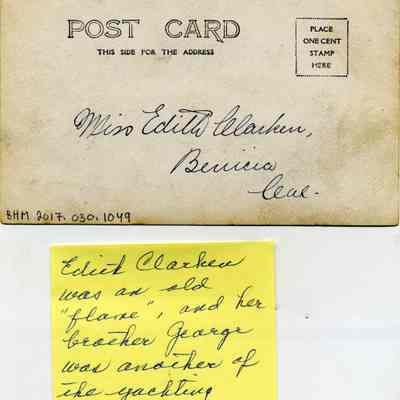 POST CARD
THIS SIDE FOR THE ADDRESS
PLACE
ONE CENT
STAMP
HERE
Miss Edith Clarken,
Benicia
Cal.
BHM 2017.030.1049
Edith Clarken
was an old
"flame", and her
brother George
was another of
the yachting